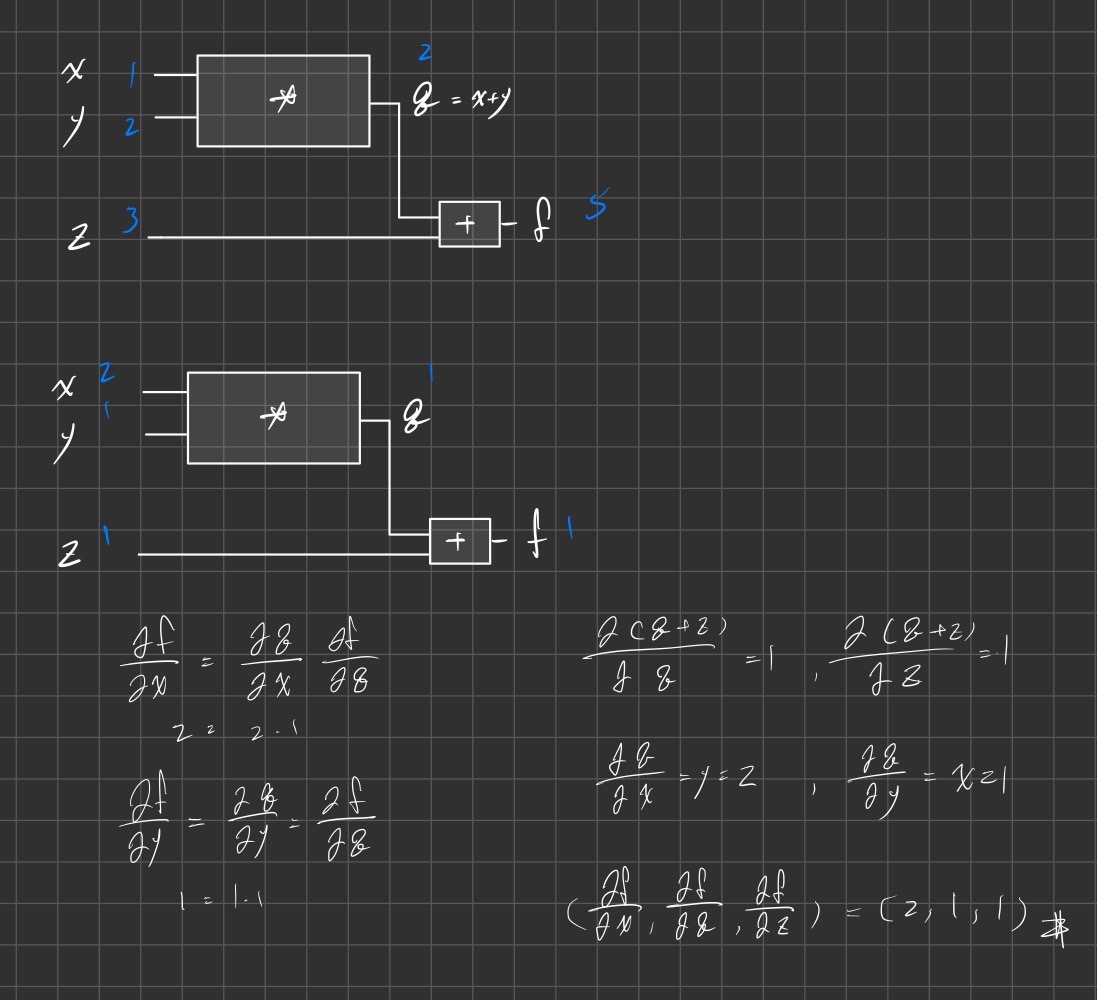 x 1 * 2
y 2 q = x+y
z 3 + f 5
x 2 * 1
y 1 q
z 1 + f 1
∂f/∂x = ∂q/∂x ∂f/∂q
2 = 2 · 1
∂f/∂y = ∂q/∂y = ∂f/∂q
1 = 1 · 1
∂(q+z)/∂q = 1 , ∂(q+z)/∂z = 1
∂q/∂x = y = 2 , ∂q/∂y = x = 1
(∂f/∂x, ∂f/∂q, ∂f/∂z) = (2, 1, 1) #